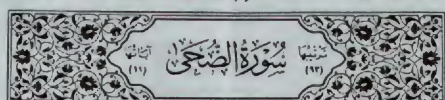 ترتيبها (٩٣) سُورَةُ الضُّحَى آياتها (١١)